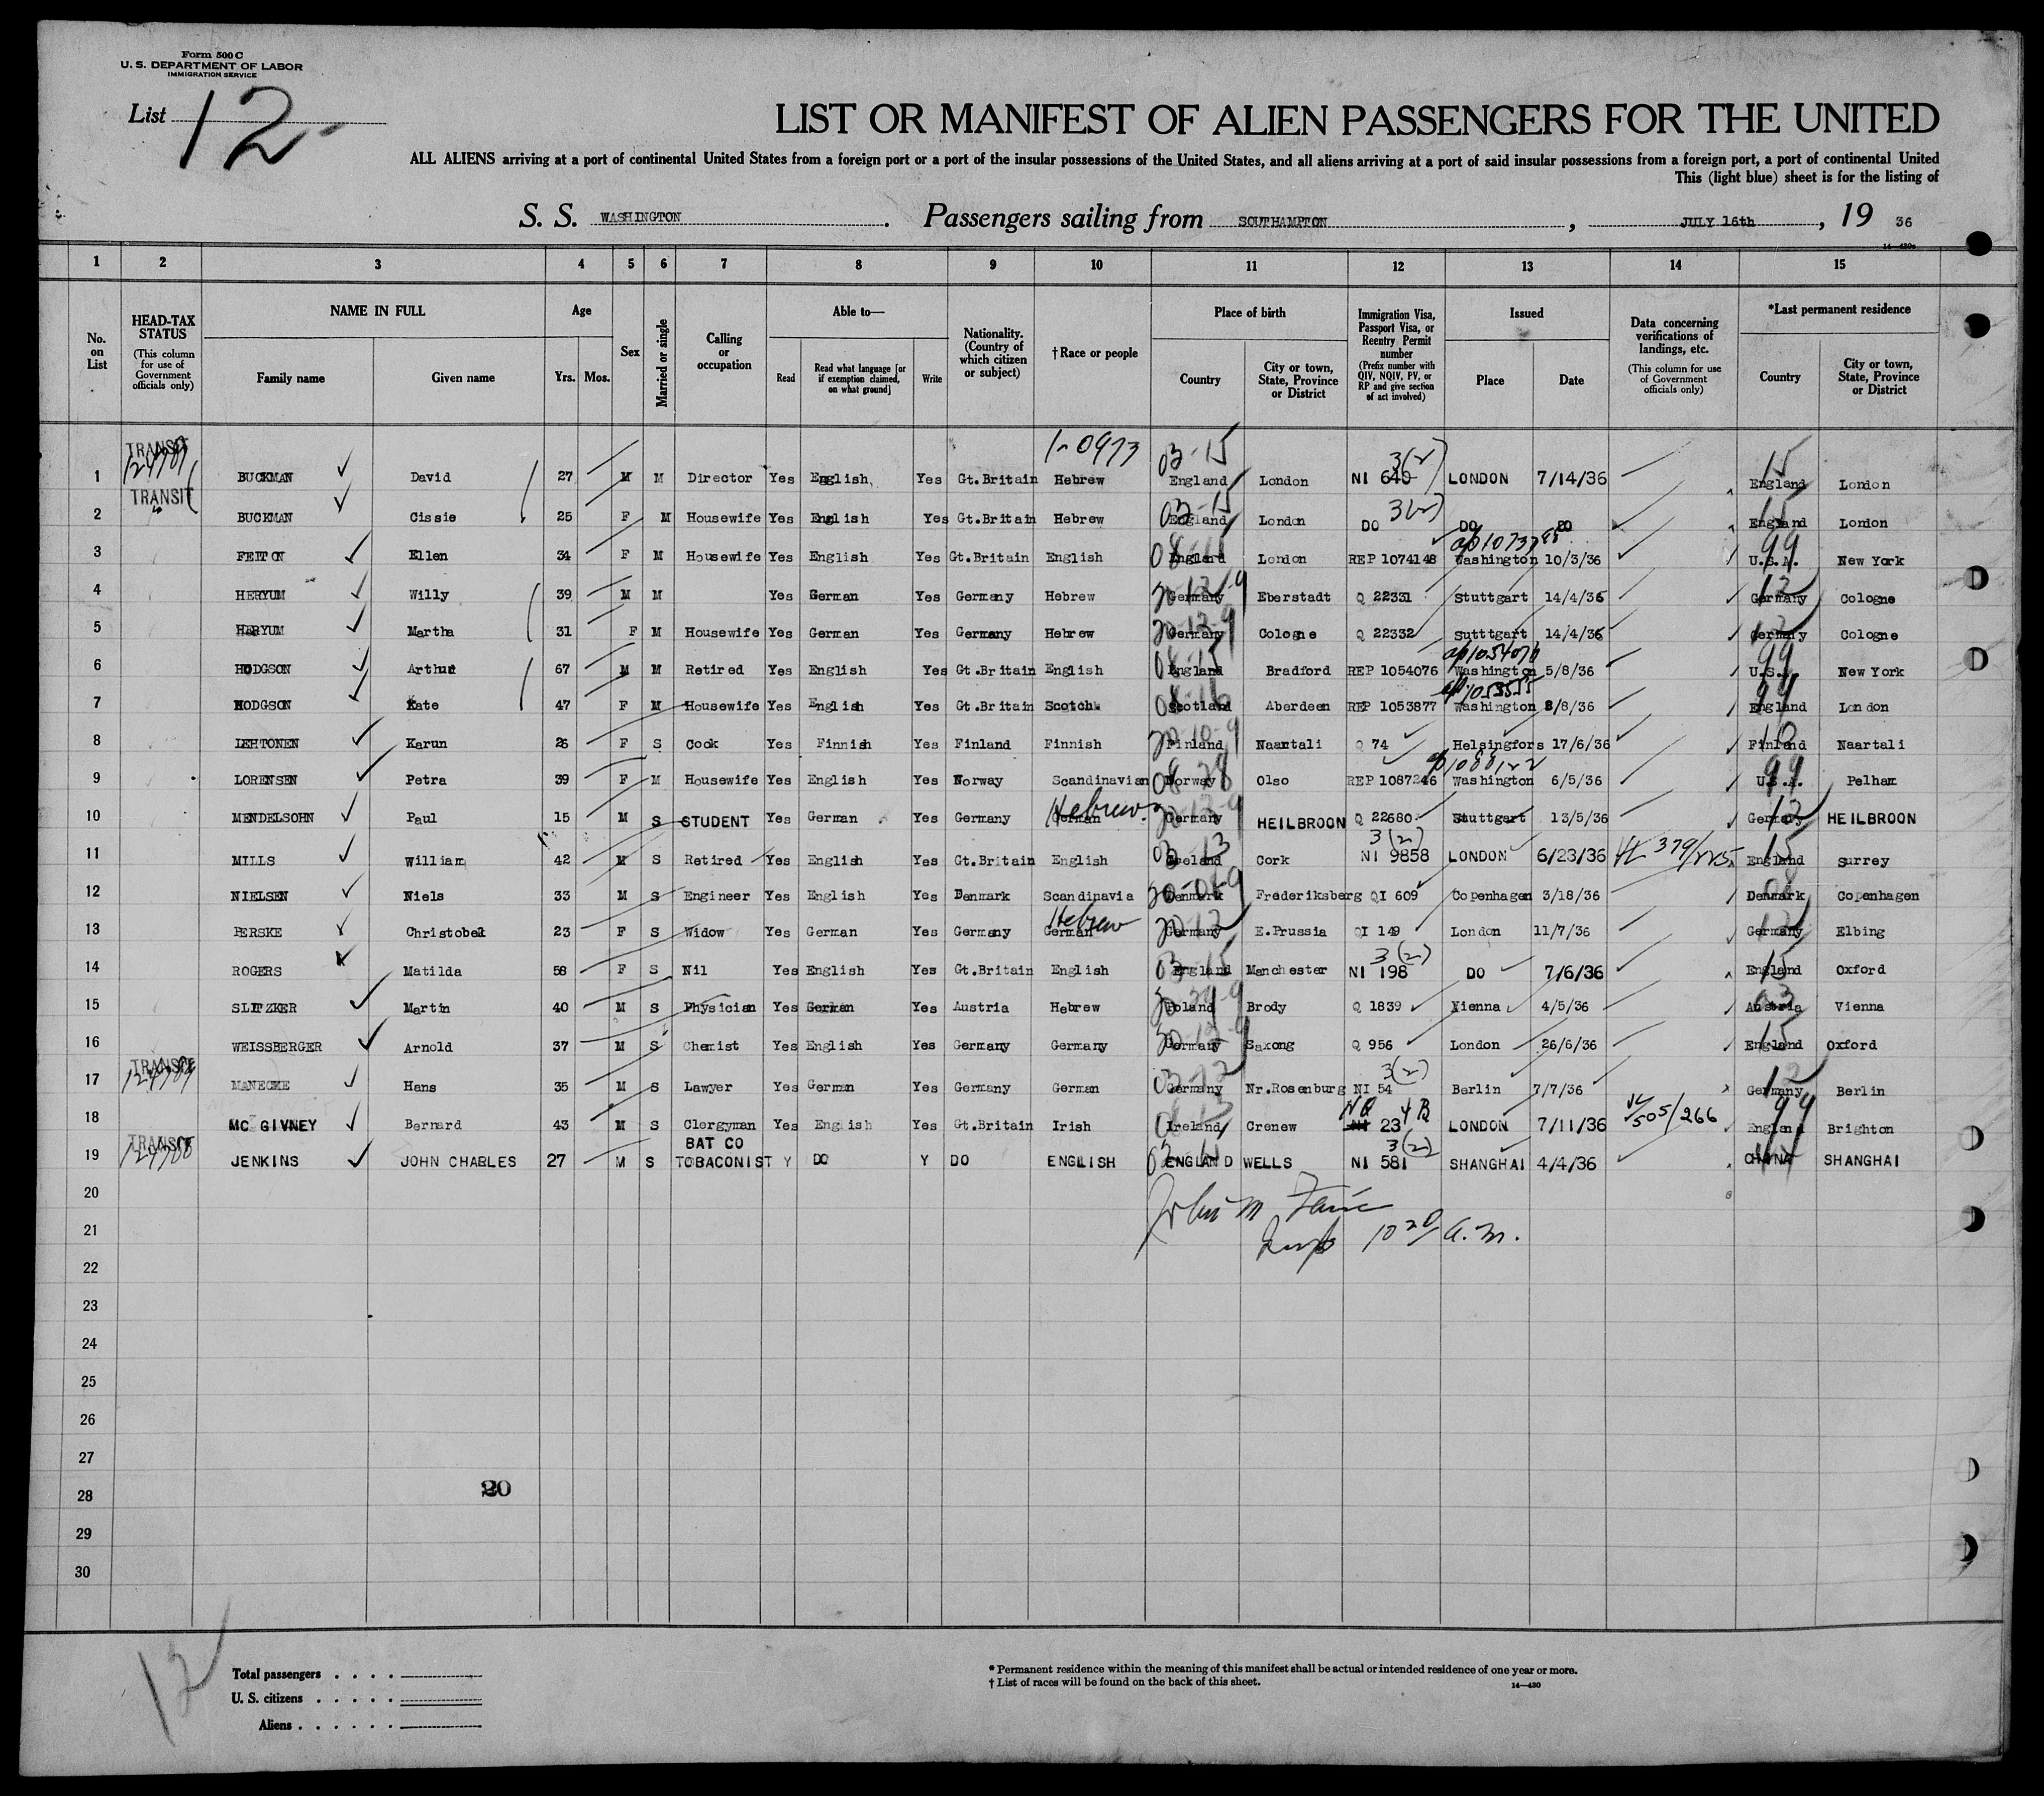 Form 500 C
U. S. DEPARTMENT OF LABOR
IMMIGRATION SERVICE
List 12
LIST OR MANIFEST OF ALIEN PASSENGERS FOR THE UNITED
ALL ALIENS arriving at a port of continental United States from a foreign port or a port of the insular possessions of the United States, and all aliens arriving at a port of said insular possessions from a foreign port, a port of continental United
This (light blue) sheet is for the listing of
S. S. WASHINGTON. Passengers sailing from SOUTHAMPTON, JULY 16th, 19 36
1 2 3 4 5 6 7 8 9 10 11 12 13 14 15
No. on List
HEAD-TAX STATUS (This column for use of Government officials only)
NAME IN FULL Family name Given name
Age Yrs. Mos.
Sex
Married or single
Calling or occupation
Able to— Read Read what language [or if exemption claimed, on what ground] Write
Nationality. (Country of which citizen or subject)
†Race or people
Place of birth Country City or town, State, Province or District
Immigration Visa, Passport Visa, or Reentry Permit number (Prefix number with QIV, NQIV, PV, or RP and give section of act involved)
Issued Place Date
Data concerning verifications of landings, etc. (This column for use of Government officials only)
*Last permanent residence Country City or town, State, Province or District
1-0973
1 TRANSIT BUCKMAN David 27 M M Director Yes English Yes Gt.Britain Hebrew 03-15 England London NI 640 3(2) LONDON 7/14/36 15 England London
2 TRANSIT BUCKMAN Cissie 25 F M Housewife Yes English Yes Gt.Britain Hebrew 03-15 England London DO 3(2) DO DO 15 England London
3 Ellen 34 F M Housewife Yes English Yes Gt.Britain English England London REP 1074148 Washington 10/3/36 99 U.S.A. New York
4 HERYUM Willy 39 M M Yes German Yes Germany Hebrew Germany Eberstadt Q 22331 Stuttgart 14/4/36 12 Germany Cologne
5 HERYUM Martha 31 F M Housewife Yes German Yes Germany Hebrew Germany Cologne Q 22332 Sutttgart 14/4/36 Germany Cologne
6 HODGSON Arthur 67 M M Retired Yes English Yes Gt.Britain English 08-15 England Bradford REP 1054076 Washington 5/8/36 99 U.S.A. New York
7 HODGSON Kate 47 F M Housewife Yes English Yes Gt.Britain Scotch 08-16 Scotland Aberdeen REP 1053877 Washington 8/8/36 99 England London
8 LEHTONEN Karun 26 F S Cook Yes Finnish Yes Finland Finnish 20-10-9 Finland Naantali Q 74 Helsingfors 17/6/36 10 Finland Naartali
9 LORENSEN Petra 39 F M Housewife Yes English Yes Norway Scandinavian 08-28 Norway Olso REP 1087246 Washington 6/5/36 99 U.S.A. Pelham
10 MENDELSOHN Paul 15 M S STUDENT Yes German Yes Germany German Hebrew 20-12-9 Germany HEILBROON Q 22680 Stuttgart 13/5/36 12 Germany HEILBROON
11 MILLS William 42 M S Retired Yes English Yes Gt.Britain English 03-13 Ireland Cork NI 9858 3(2) LONDON 6/23/36 15 England Surrey
12 NIELSEN Niels 33 M S Engineer Yes English Yes Denmark Scandinavia Denmark Frederiksberg QI 609 Copenhagen 3/18/36 08 Denmark Copenhagen
13 PERSKE Christobel 23 F S Widow Yes German Yes Germany German Hebrew 20-12 Germany E.Prussia QI 149 London 11/7/36 12 Germany Elbing
14 ROGERS Matilda 58 F S Nil Yes English Yes Gt.Britain English 03-15 England Manchester NI 198 3(2) DO 7/6/36 15 England Oxford
15 SLITZKER Martin 40 M S Physician Yes German Yes Austria Hebrew Poland Brody Q 1839 Vienna 4/5/36 03 Austria Vienna
16 WEISSBERGER Arnold 37 M S Chemist Yes English Yes Germany Germany 20-12-9 Germany Saxong Q 956 London 26/6/36 15 England Oxford
17 TRANSIT MANECKE Hans 35 M S Lawyer Yes German Yes Germany German 03-12 Germany Nr.Rosenburg NI 54 3(2) Berlin 7/7/36 12 Germany Berlin
18 MC GIVNEY Bernard 43 M S Clergyman Yes English Yes Gt.Britain Irish Ireland Crenew NQ 4B NI 23 LONDON 7/11/36 505/266 99 England Brighton
19 TRANSIT JENKINS JOHN CHARLES 27 M S BAT CO TOBACONIST Y DO Y DO ENGLISH ENGLAND WELLS NI 581 3(2) SHANGHAI 4/4/36 CHINA SHANGHAI
20
21 10 20 a.m.
22
23
24
25
26
27
28
29
30
12
Total passengers
U. S. citizens
Aliens
* Permanent residence within the meaning of this manifest shall be actual or intended residence of one year or more.
† List of races will be found on the back of this sheet.
14—430